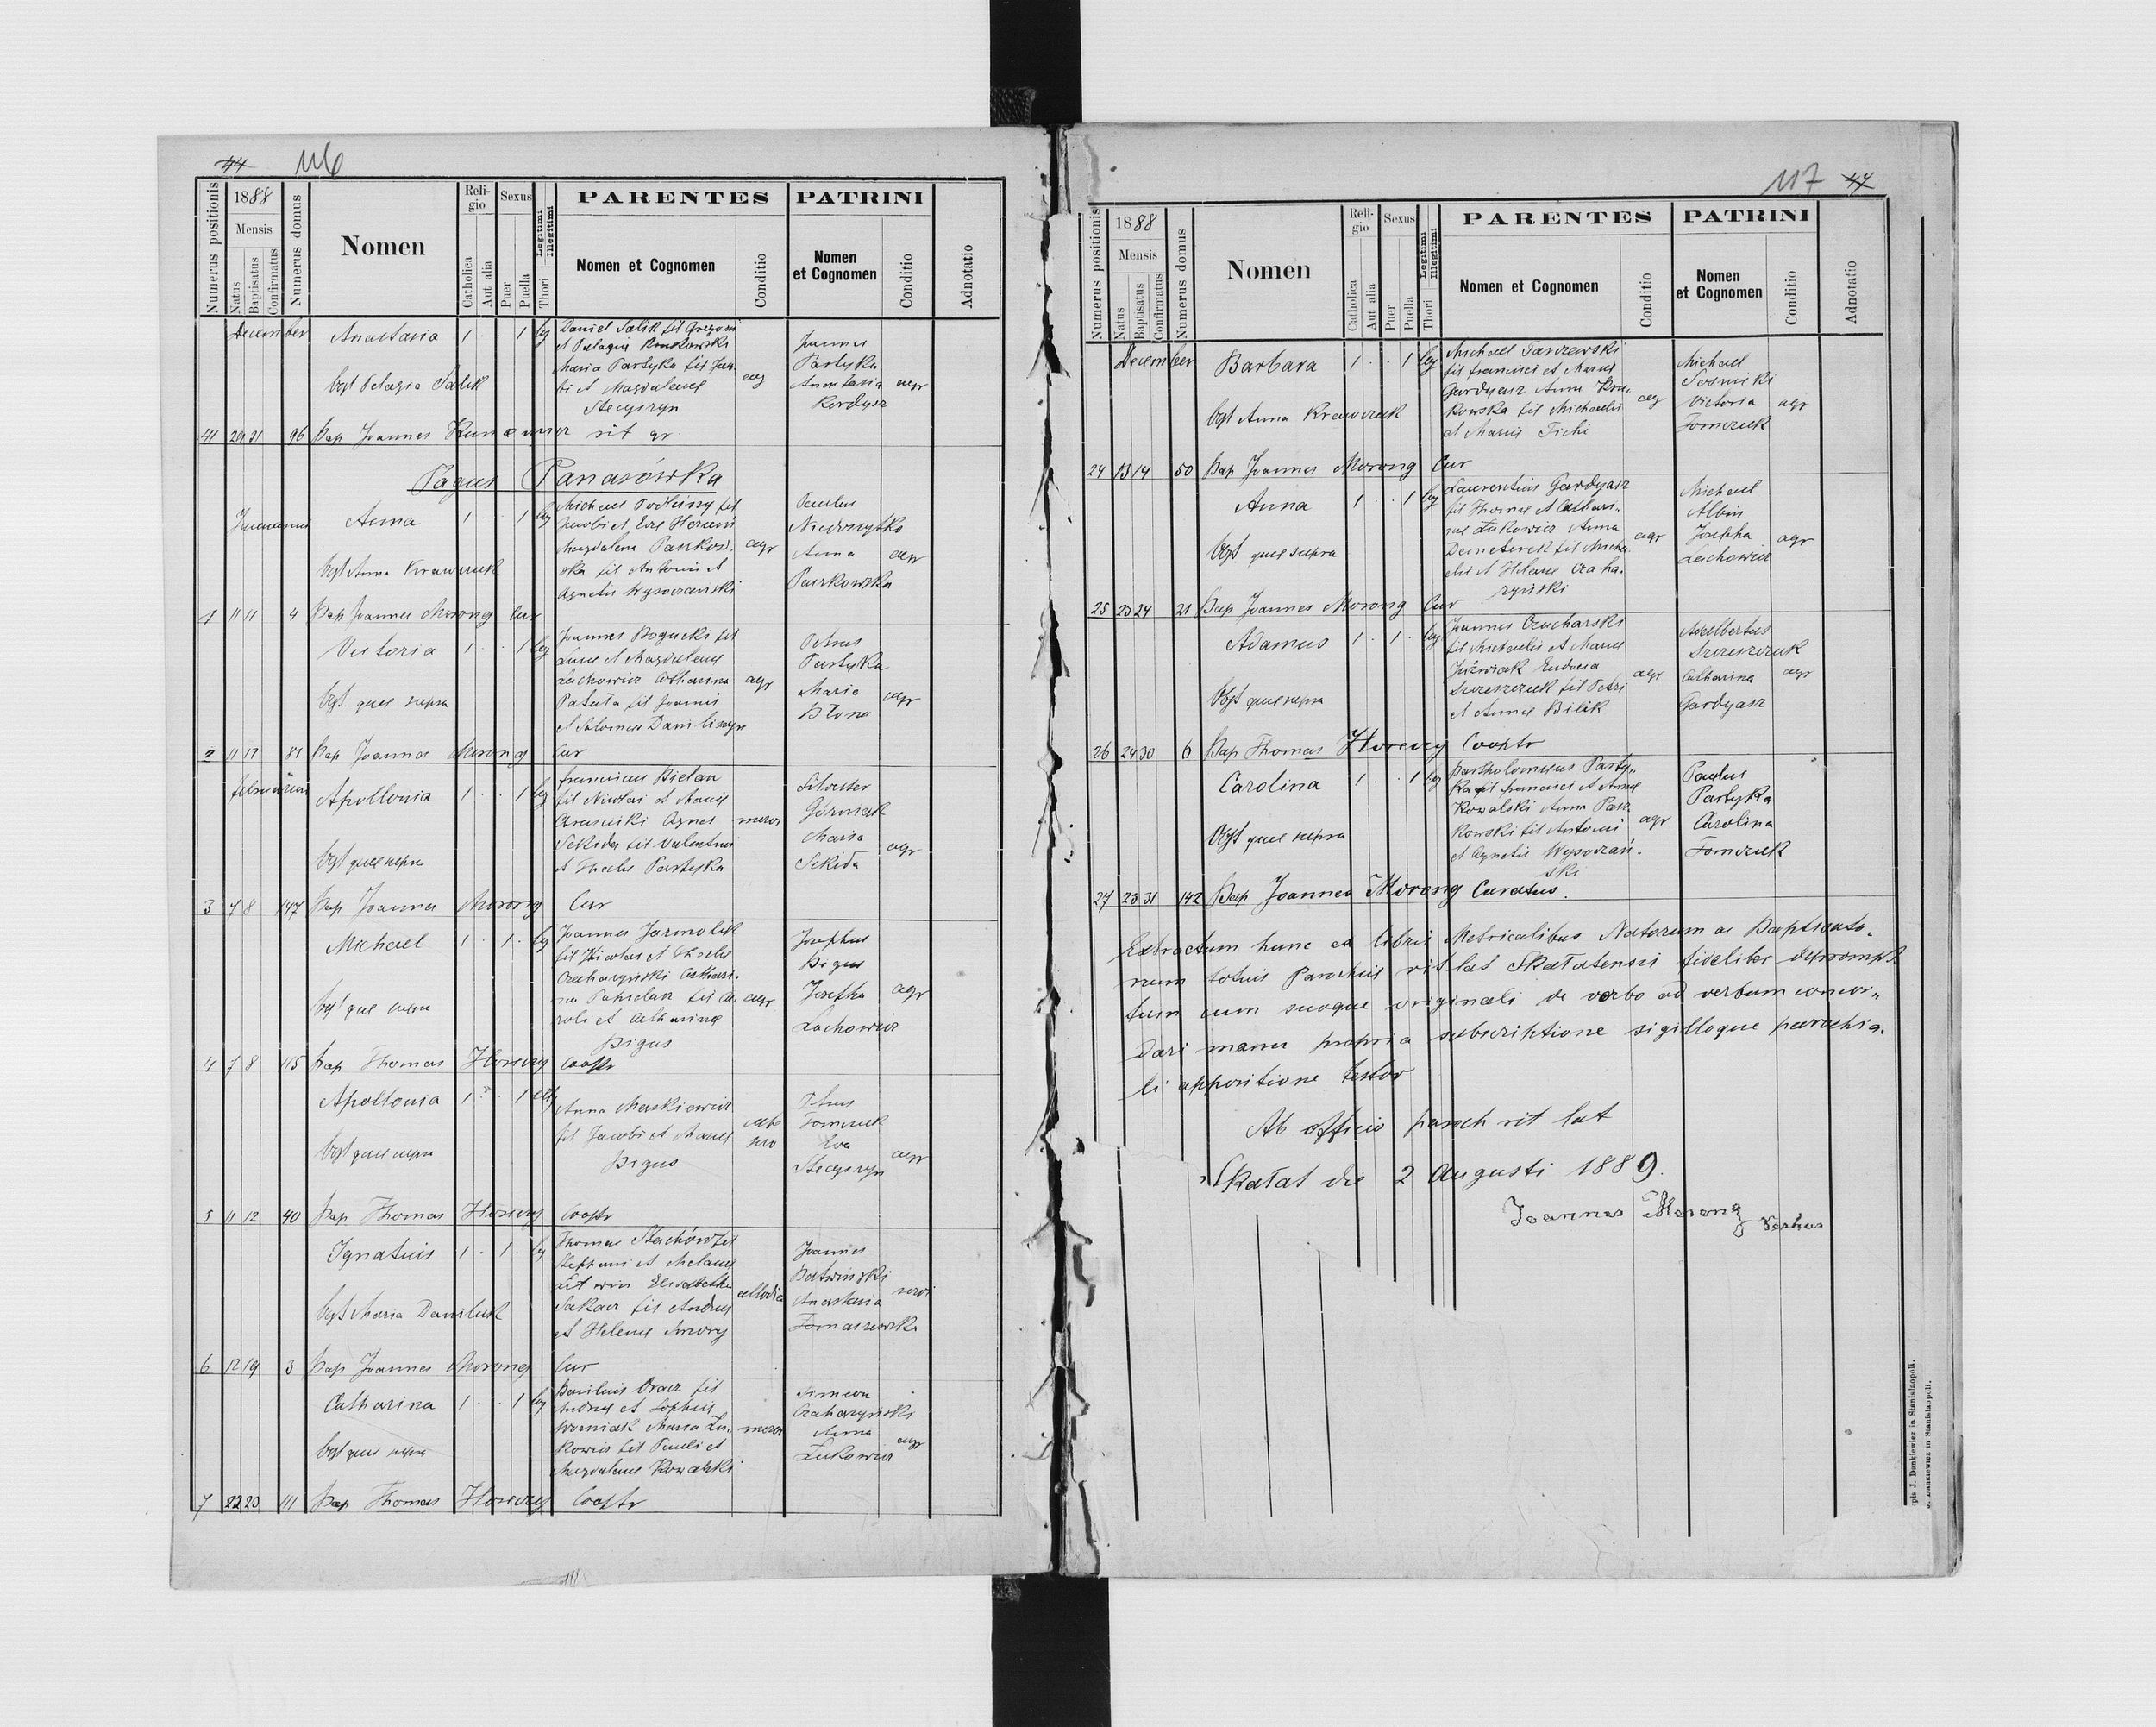 44 116
Numerus positionis
1888
Mensis
Natus
Baptisatus
Confirmatus
Numerus domus
Nomen
Religio
Catholica
Aut alia
Sexus
Puer
Puella
Legitimi
Illegitimi
Thori
PARENTES
Nomen et Cognomen
Conditio
PATRINI
Nomen
et Cognomen
Conditio
Adnotatio
December Anastasia 1 . . 1 leg
Daniel Salik fil Gregorii
et Pelagii
Maria Partyka fil Jaco-
bi et Magdalenae
Stecyszyn
agr
Joannes
Partyka
Anastasia
Kordyasz
agr
Obst Pelagia Salik
41 29 31 96 Bap Joannes rit gr.
Pagus Panasówka
Januarius Anna 1 . . 1 leg
Michael Podleśny fil
Jacobi et Evae
Magdalena Paszkow-
ska fil Antonii et
Agnetis Wysoczański
agr
Paulus
Niedoszytko
Anna
Paszkowska
agr
Obst Anna Krawczuk
1 11 11 4 Bap Joannes Morong Cur
Victoria 1 . . 1 leg
Joannes Bogucki fil
Lucae et Magdalenae
Lachowicz Catharina
Patuta fil Joannis
et Salomeae Daniliszyn
agr
Petrus
Partyka
Maria
agr
Obst. quae supra
2 11 17 81 Bap Joannes Morong Cur
februarius Apollonia 1 . . 1 leg
Franciscus Bielan
fil Nicolai et Mariae
Agnes
Sekida fil Valentini
et Theclae Partyka
Silvester
Górniak
Maria
Sekida
agr
Obst quae supra
3 7 8 147 Bap Joannes Morong Cur
Michael 1 . 1 . leg
Joannes Jarmoluk
fil Nicolai et Theclae
Czaharyński Cathari-
na fil Ca-
roli et Catharinae
Bigus
agr
Josephus
Bigus
Josepha
Lachowicz
agr
Obst quae supra
4 7 8 115 Bap Thomas Horeczy Cooptr
Apollonia 1 . . 1
Anna Maskiewicz
fil Jacobi et Mariae
Bigus
Petrus
Tomczuk
Eva
Stecyszyn
agr
Obst quae supra
5 11 12 40 Bap Thomas Horeczy Cooptr
Ignatius 1 . 1 . leg
Thomas Stachów fil
Stephani et Melaniae
Litwin Elisabetha
Sakacz fil Andreae
et Helenae
Joannes
Batwinski
Anastasia
Tomaszewska
servi
Obst Maria Daniluk
6 12 19 3 Bap Joannes Morong Cur
Catharina 1 . . 1 leg
Basilius fil
Andreae et Sophiae
Worniak Maria Lu-
kowicz fil Pauli et
Magdalenae Kowalski
Simeon
Czaharyński
Anna
Lukowicz
agr
Obst quae supra
7 22 23 111 Bap Thomas Horeczy Cooptr
117 44
Numerus positionis
1888
Mensis
Natus
Baptisatus
Confirmatus
Numerus domus
Nomen
Religio
Catholica
Aut alia
Sexus
Puer
Puella
Legitimi
Illegitimi
Thori
PARENTES
Nomen et Cognomen
Conditio
PATRINI
Nomen
et Cognomen
Conditio
Adnotatio
December Barbara 1 . . 1 leg
Michael Taszewski
fil Francisci et Mariae
Gardyasz Anna
kowska fil Michaelis
et Mariae Tichi
agr
Michael
Sosnicki
Victoria
Tomczuk
agr
Obst Anna Krawczuk
24 13 14 50 Bap Joannes Morong Cur
Anna 1 . . 1 leg
Laurentius Gardyasz
fil Thomae et Cathari-
nae Lukowicz Anna
Demeterek fil Micha-
elis et Helenae Czaha-
ryński
agr
Michael
Albin
Josepha
Lachowicz
agr
Obst quae supra
25 23 24 21 Bap Joannes Morong Cur
Adamus 1 . 1 . leg
Joannes Czucharski
fil Michaelis et Mariae
Jużwiak Eudocia
Szczeszczuk fil Petri
et Annae Bilik
agr
Adalbertus
Szczeszczuk
Catharina
Gardyasz
agr
Obst quae supra
26 24 30 6 Bap Thomas Horeczy Cooptr
Carolina 1 . . 1 leg
Bartholomeus Party-
ka fil Francisci et Annae
Kowalski Anna Pasz-
kowski fil Antonii
et Agnetis Wysoczań-
ski
agr
Paulus
Partyka
Carolina
Tomczuk
Obst quae supra
27 23 31 142 Bap Joannes Morong Curatus.
Extractum hunc ex libris Metricalibus Natorum ac Baptisato-
rum totius Parochiae rit lat Skałatensis fideliter deromp-
tum cum suoque originali de verbo ad verbum concor-
dari manu propria subscriptione sigilloque parochia-
li appositione testor
Ab officio paroch rit lat
Skałat die 2 Augusti 1889.
Joannes Morong
J. Dankiewicz in Stanislaopoli.